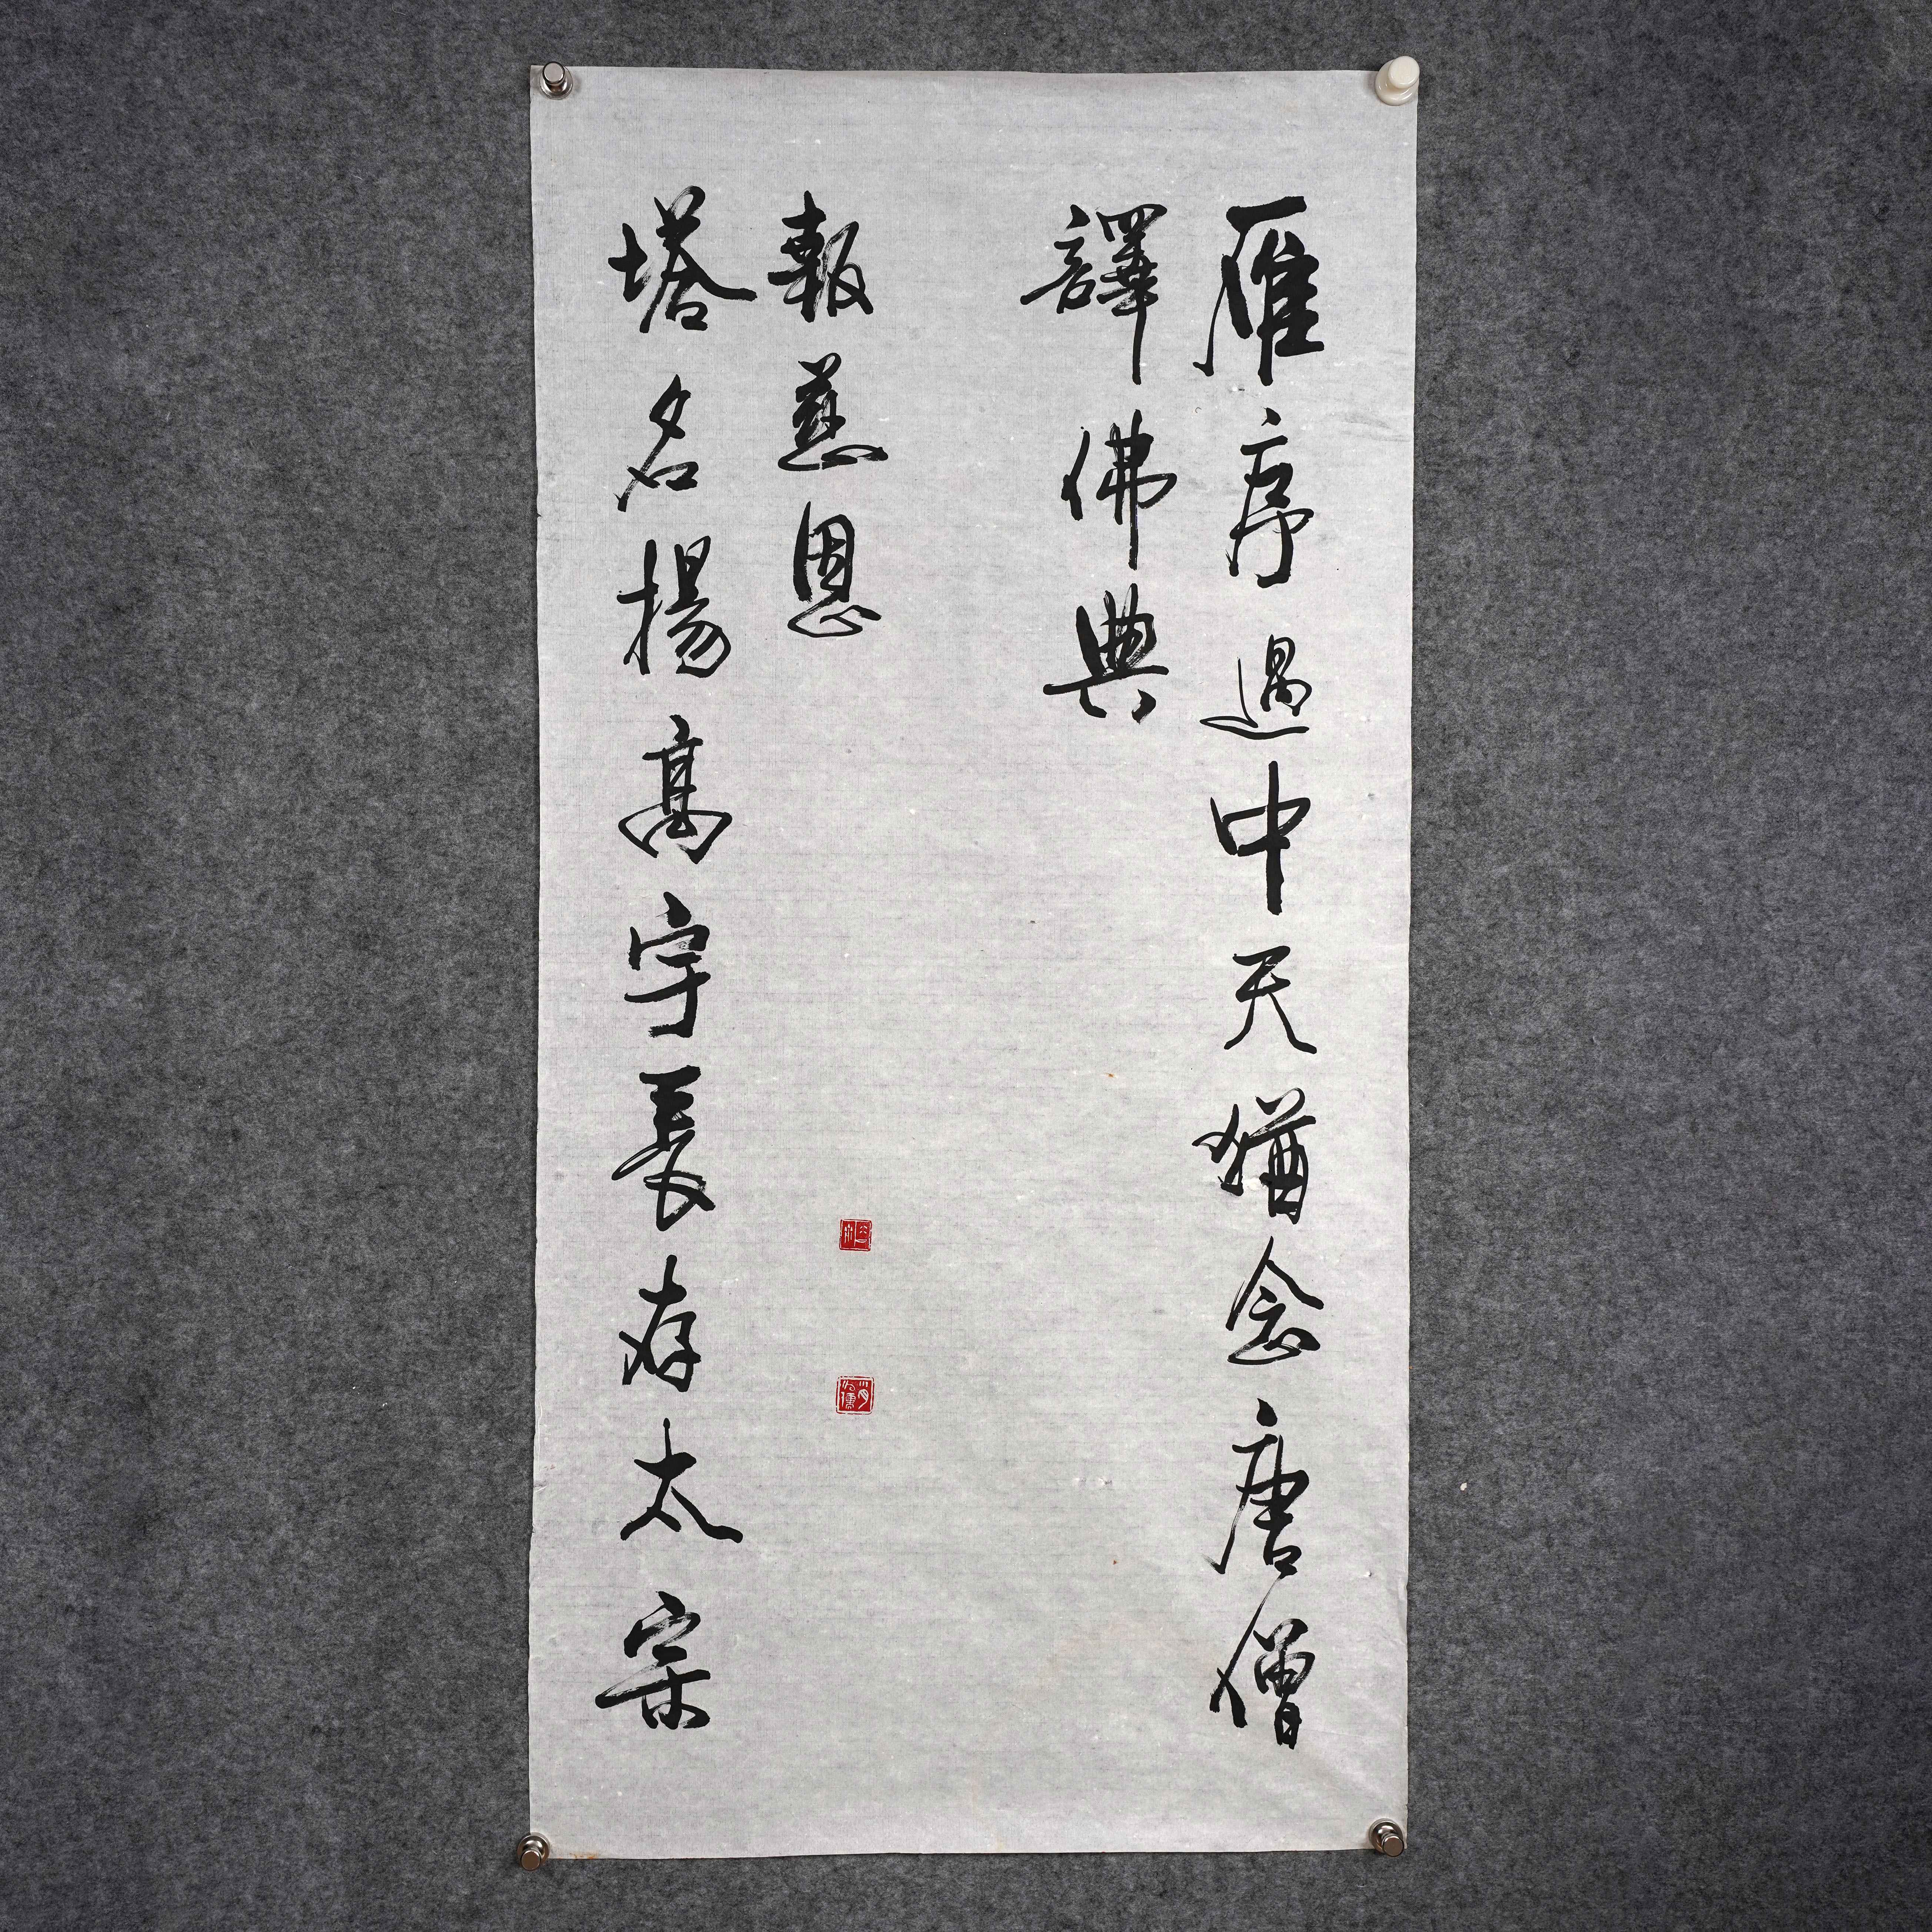 雁序過中天猶念唐僧
譯佛典
塔名揚高宇長存太宗
報慈恩